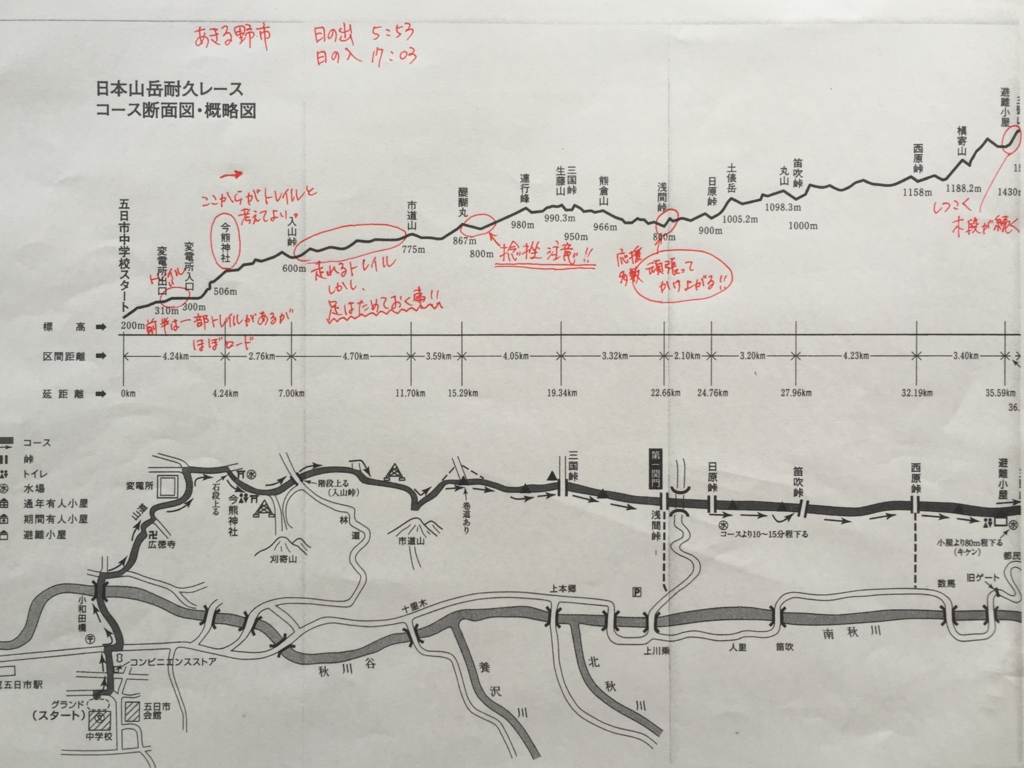 あきる野市 日の出 5:53
日の入 17:03
日本山岳耐久レース
コース断面図・概略図
五日市中学校スタート
変電所出口
変電所入口
今熊神社
入山峠
市道山
醍醐丸
連行峰
生藤山
三国峠
熊倉山
浅間峠
日原峠
土俵岳
丸山
笛吹峠
西原峠
槇寄山
避難小屋
ここからがトレイルと
考えてよい。
トレイル
走れるトレイル
しかし、
足はためておく事!!
捻挫注意!!
応援
多数
頑張って
かけ上がる!!
しつこく
木段が続く
前半は一部トレイルがあるが
ほぼロード
200m
310m
300m
506m
600m
775m
867m
800m
980m
990.3m
966m
900m
1005.2m
1098.3m
1000m
1158m
1188.2m
1430
標高
区間距離 4.24km 2.76km 4.70km 3.59km 4.05km 3.32km 2.10km 3.20km 4.23km 3.40km
延距離 0km 4.24km 7.00km 11.70km 15.29km 19.34km 22.66km 24.76km 27.96km 32.19km 35.59km
36.
コース
峠
トイレ
水場
通年有人小屋
期間有人小屋
避難小屋
変電所
山道
卍広徳寺
石段上る
今熊神社
階段上る
(入山峠)
刈寄山
林道
市道山
巻道あり
三国峠
第一関門
浅間峠
日原峠
コースより10〜15分程下る
笛吹峠
西原峠
避難小屋
小屋より80m程下る
(キケン)
都民
旧ゲート
数馬
小和田橋
〒
コンビニエンスストア
五日市駅
グランド
(スタート)
中学校
五日市
会館
秋川谷
十里木
養沢川
上本郷
北秋川
P
上川乗
人里
笛吹
南秋川